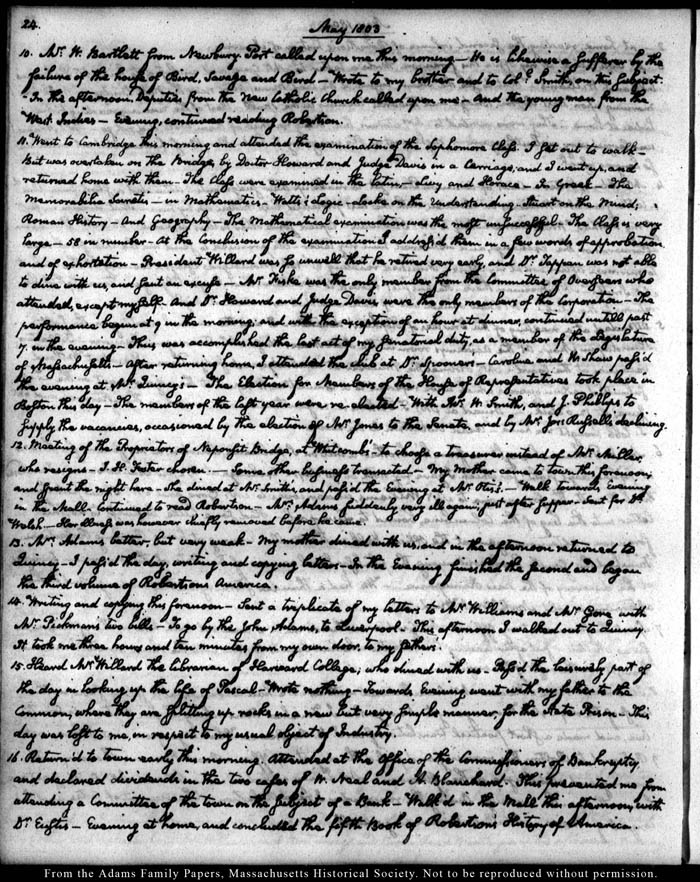 24.
May 1803
10. Mr. W. Bartlett from Newbury-Port called upon me this morning — He is likewise a sufferer by the
failure of the house of Bird, Savage and Bird — Wrote to my brother and to Coll. Smith, on this subject.
— In the afternoon, Deputies from the new Catholic Church called upon me — And the young man from the
West Indies — Evening, continued reading Robertson.
11. Went to Cambridge this morning and attended the examination of the Sophomore Class. I set out to walk —
But was overtaken on the Bridge, by Doctor Howard and Judge Davis in a Carriage, and I went up, and
returned home with them — The Class were examined in the Latin — Livy and Horace — In Greek — The
Memorabilia Socratis — in Mathematics — Watts's Logic — Locke on the Understanding — Stuart on the Mind,
Roman History — And Geography — The Mathematical examination was the most unsuccessful. The Class is very
large — 58 in number — At the Conclusion of the examination I address'd them in a few words of approbation
and of exhortation — President Willard was so unwell that he retired very early, and Dr. Tappan was not able
to dine with us, and sent an excuse — Mr. Fiske was the only member from the Committee of Overseers who
attended, except myself. And Dr. Howard and Judge Davis were the only members of the Corporation — The
performance began at 9 in the morning; and with the exception of an hour at dinner, continued untill past
7. in the evening — Thus was accomplished the last act of my Senatorial duty, as a member of the Legislature
of Massachusetts — After returning home, I attended the club at Dr. Spooner's — Caroline and W. Shaw pass'd
the evening at Mr. Quincy's — The Election for Members of the House of Representatives took place in
Boston this day — The members of the last year were re-elected — With W. Smith, and J. Phillips to
supply the vacancies, occasioned by the election of Mr. Jones to the Senate, and by Mr. Jon: Russell's declining.
12. Meeting of the Proprietors of Neponset Bridge, at Whitcomb's — to choose a treasurer instead of Mr.
who resigns — J. H. Foster chosen — Some other business transacted — My Mother came to town this forenoon;
and spent the night here — She dined at Mr. Smith's, and pass'd the Evening at Mr. Otis's. — Walk towards Evening
in the Mall — Continued to read Robertson — Mrs. Adams suddenly very ill again, just after supper. Sent for Dr.
Welsh — Her illness was however chiefly removed before he came.
13. Mrs. Adams better, but very weak — My mother dined with us, and in the afternoon returned to
Quincy — I pass'd the day, writing and copying letters — In the Evening finished the second and began
the third volume of Robertson's America.
14. Writing and copying this forenoon — Sent a triplicate of my letters to Mr. Williams and Mr. Gore with
Mr. Pickman's two bills — To go by the John Adams, to Liverpool — This afternoon I walked out to Quincy.
It took me three hours and ten minutes from my own door, to my father's.
15. Heard Mr. Willard the Librarian of Harvard College; who dined with us — Pass'd the leisurely part of
the day in looking up the life of Pascal — Wrote nothing — Towards Evening went with my father to the
Common, where they are splitting up rocks in a new but very simple manner, for the State Prison — This
day was lost to me, in respect to my usual object of Industry.
16. Return'd to town early this morning. Attended at the Office of the Commissioners of Bankruptcy
and declared dividends in the two cases of W. Neal and H. Blanchard. This prevented me from
attending a Committee of the town on the subject of a Bank — Walk'd in the Mall this afternoon, with
Dr. Eustis — Evening at home, and concluded the fifth Book of Robertson's History of America.
From the Adams Family Papers, Massachusetts Historical Society. Not to be reproduced without permission.